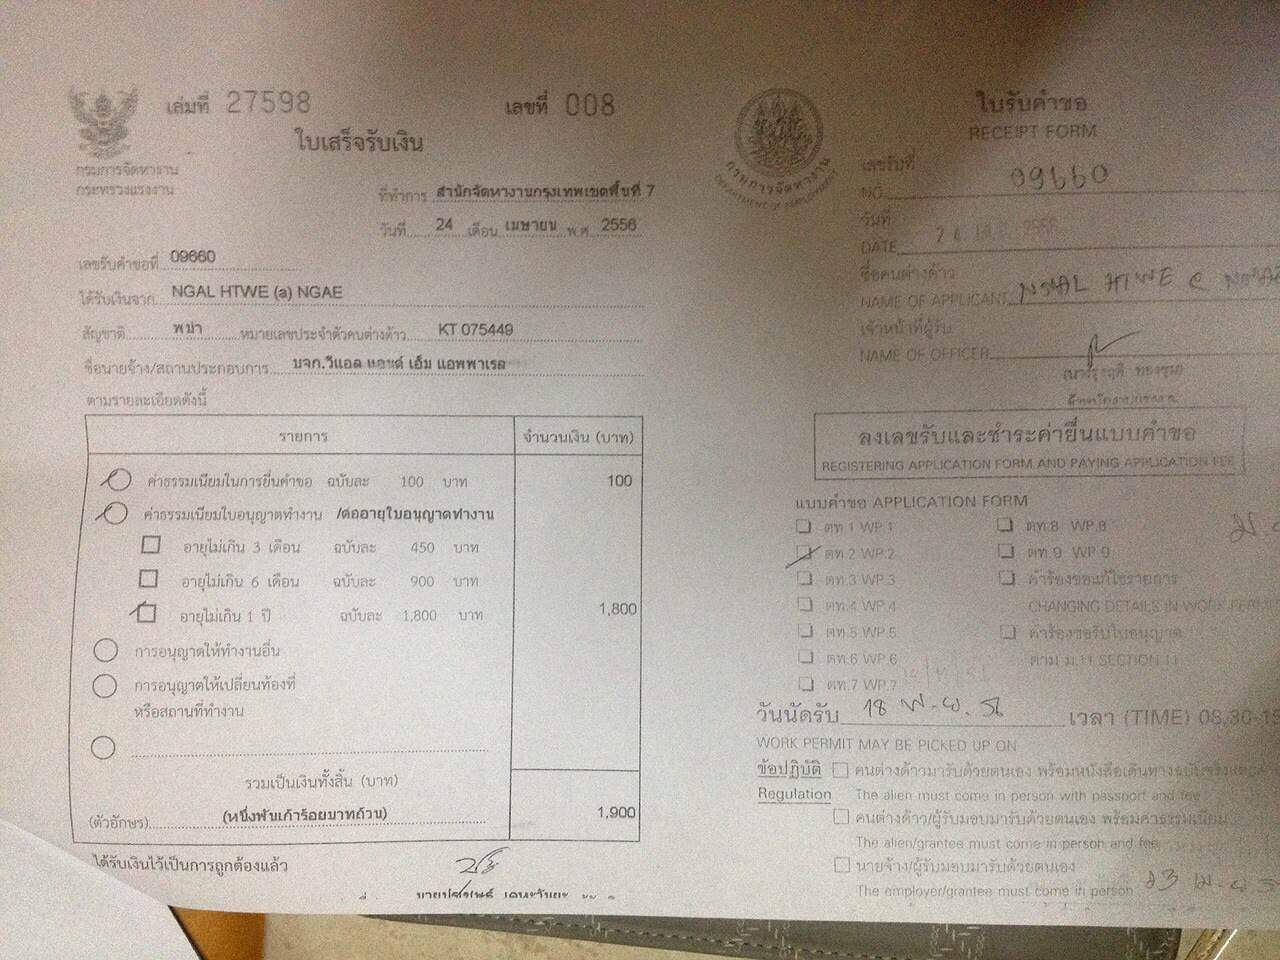 เล่มที่ 27598 เลขที่ 008
ใบเสร็จรับเงิน
กรมการจัดหางาน
กระทรวงแรงงาน
ที่ทำการ สำนักจัดหางานกรุงเทพเขตพื้นที่ 7
วันที่ 24 เดือน เมษายน พ.ศ. 2556
เลขรับคำขอที่ 09660
ได้รับเงินจาก NGAL HTWE (a) NGAE
สัญชาติ พม่า หมายเลขประจำตัวคนต่างด้าว KT 075449
ชื่อนายจ้าง/สถานประกอบการ บจก.วีแอล แอนด์ เอ็ม แอพพาเรล
ตามรายละเอียดดังนี้
รายการ จำนวนเงิน (บาท)
ค่าธรรมเนียมในการยื่นคำขอ ฉบับละ 100 บาท 100
ค่าธรรมเนียมใบอนุญาตทำงาน /ต่ออายุใบอนุญาตทำงาน
อายุไม่เกิน 3 เดือน ฉบับละ 450 บาท
อายุไม่เกิน 6 เดือน ฉบับละ 900 บาท
อายุไม่เกิน 1 ปี ฉบับละ 1,800 บาท 1,800
การอนุญาตให้ทำงานอื่น
การอนุญาตให้เปลี่ยนท้องที่
หรือสถานที่ทำงาน
รวมเป็นเงินทั้งสิ้น (บาท)
(ตัวอักษร) (หนึ่งพันเก้าร้อยบาทถ้วน) 1,900
ได้รับเงินไว้เป็นการถูกต้องแล้ว
กรมการจัดหางาน
DEPARTMENT OF EMPLOYMENT
ใบรับคำขอ
RECEIPT FORM
เลขรับที่
NO. 09660
วันที่
DATE
ชื่อคนต่างด้าว
NAME OF APPLICANT NGAL HTWE
เจ้าหน้าที่ผู้รับ
NAME OF OFFICER
ลงเลขรับและชำระค่ายื่นแบบคำขอ
REGISTERING APPLICATION FORM AND PAYING APPLICATION FEE
แบบคำขอ APPLICATION FORM
ตท.1 WP.1 ตท.8 WP.8
ตท.2 WP.2 ตท.9 WP.9
ตท.3 WP.3 คำร้องขอแก้ไขรายการ
ตท.4 WP.4 CHANGING DETAILS IN WORK PERMI
ตท.5 WP.5 คำร้องขอรับใบอนุญาต
ตท.6 WP.6 ตาม ม.11 SECTION 11
ตท.7 WP.7
วันนัดรับ 18 พ.ย. 56 เวลา (TIME) 08.30-15
WORK PERMIT MAY BE PICKED UP ON
ข้อปฏิบัติ คนต่างด้าวมารับด้วยตนเอง พร้อมหนังสือเดินทางฉบับจริงและ
Regulation The alien must come in person with passport and fee
คนต่างด้าว/ผู้รับมอบมารับด้วยตนเอง พร้อมค่าธรรมเนียม
The alien/grantee must come in person and fee
นายจ้าง/ผู้รับมอบมารับด้วยตนเอง
The employer/grantee must come in person